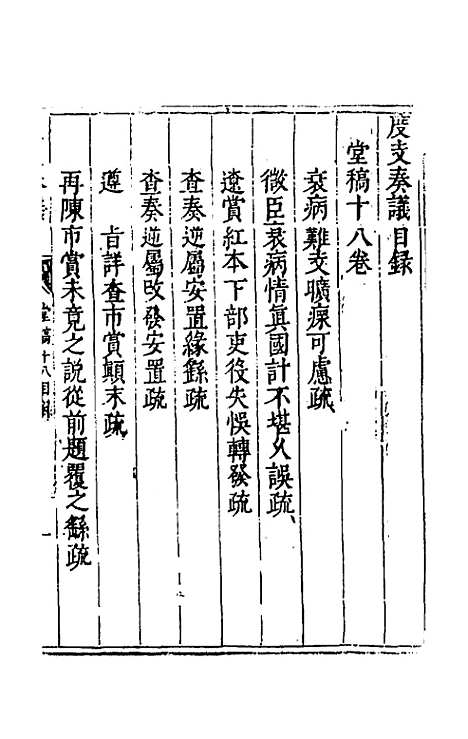 度支奏議目録
堂稿十八卷
衰病難支曠瘝可慮疏
微臣衰病情眞國計不堪久誤疏
遼賞紅本下部吏役失悞轉發疏
查奏逆屬安置緣繇疏
查奏逆屬改發安置疏
遵　旨詳查市賞顛末疏
再陳市賞未竟之說從前題覆之繇疏
堂稿十八目録
一